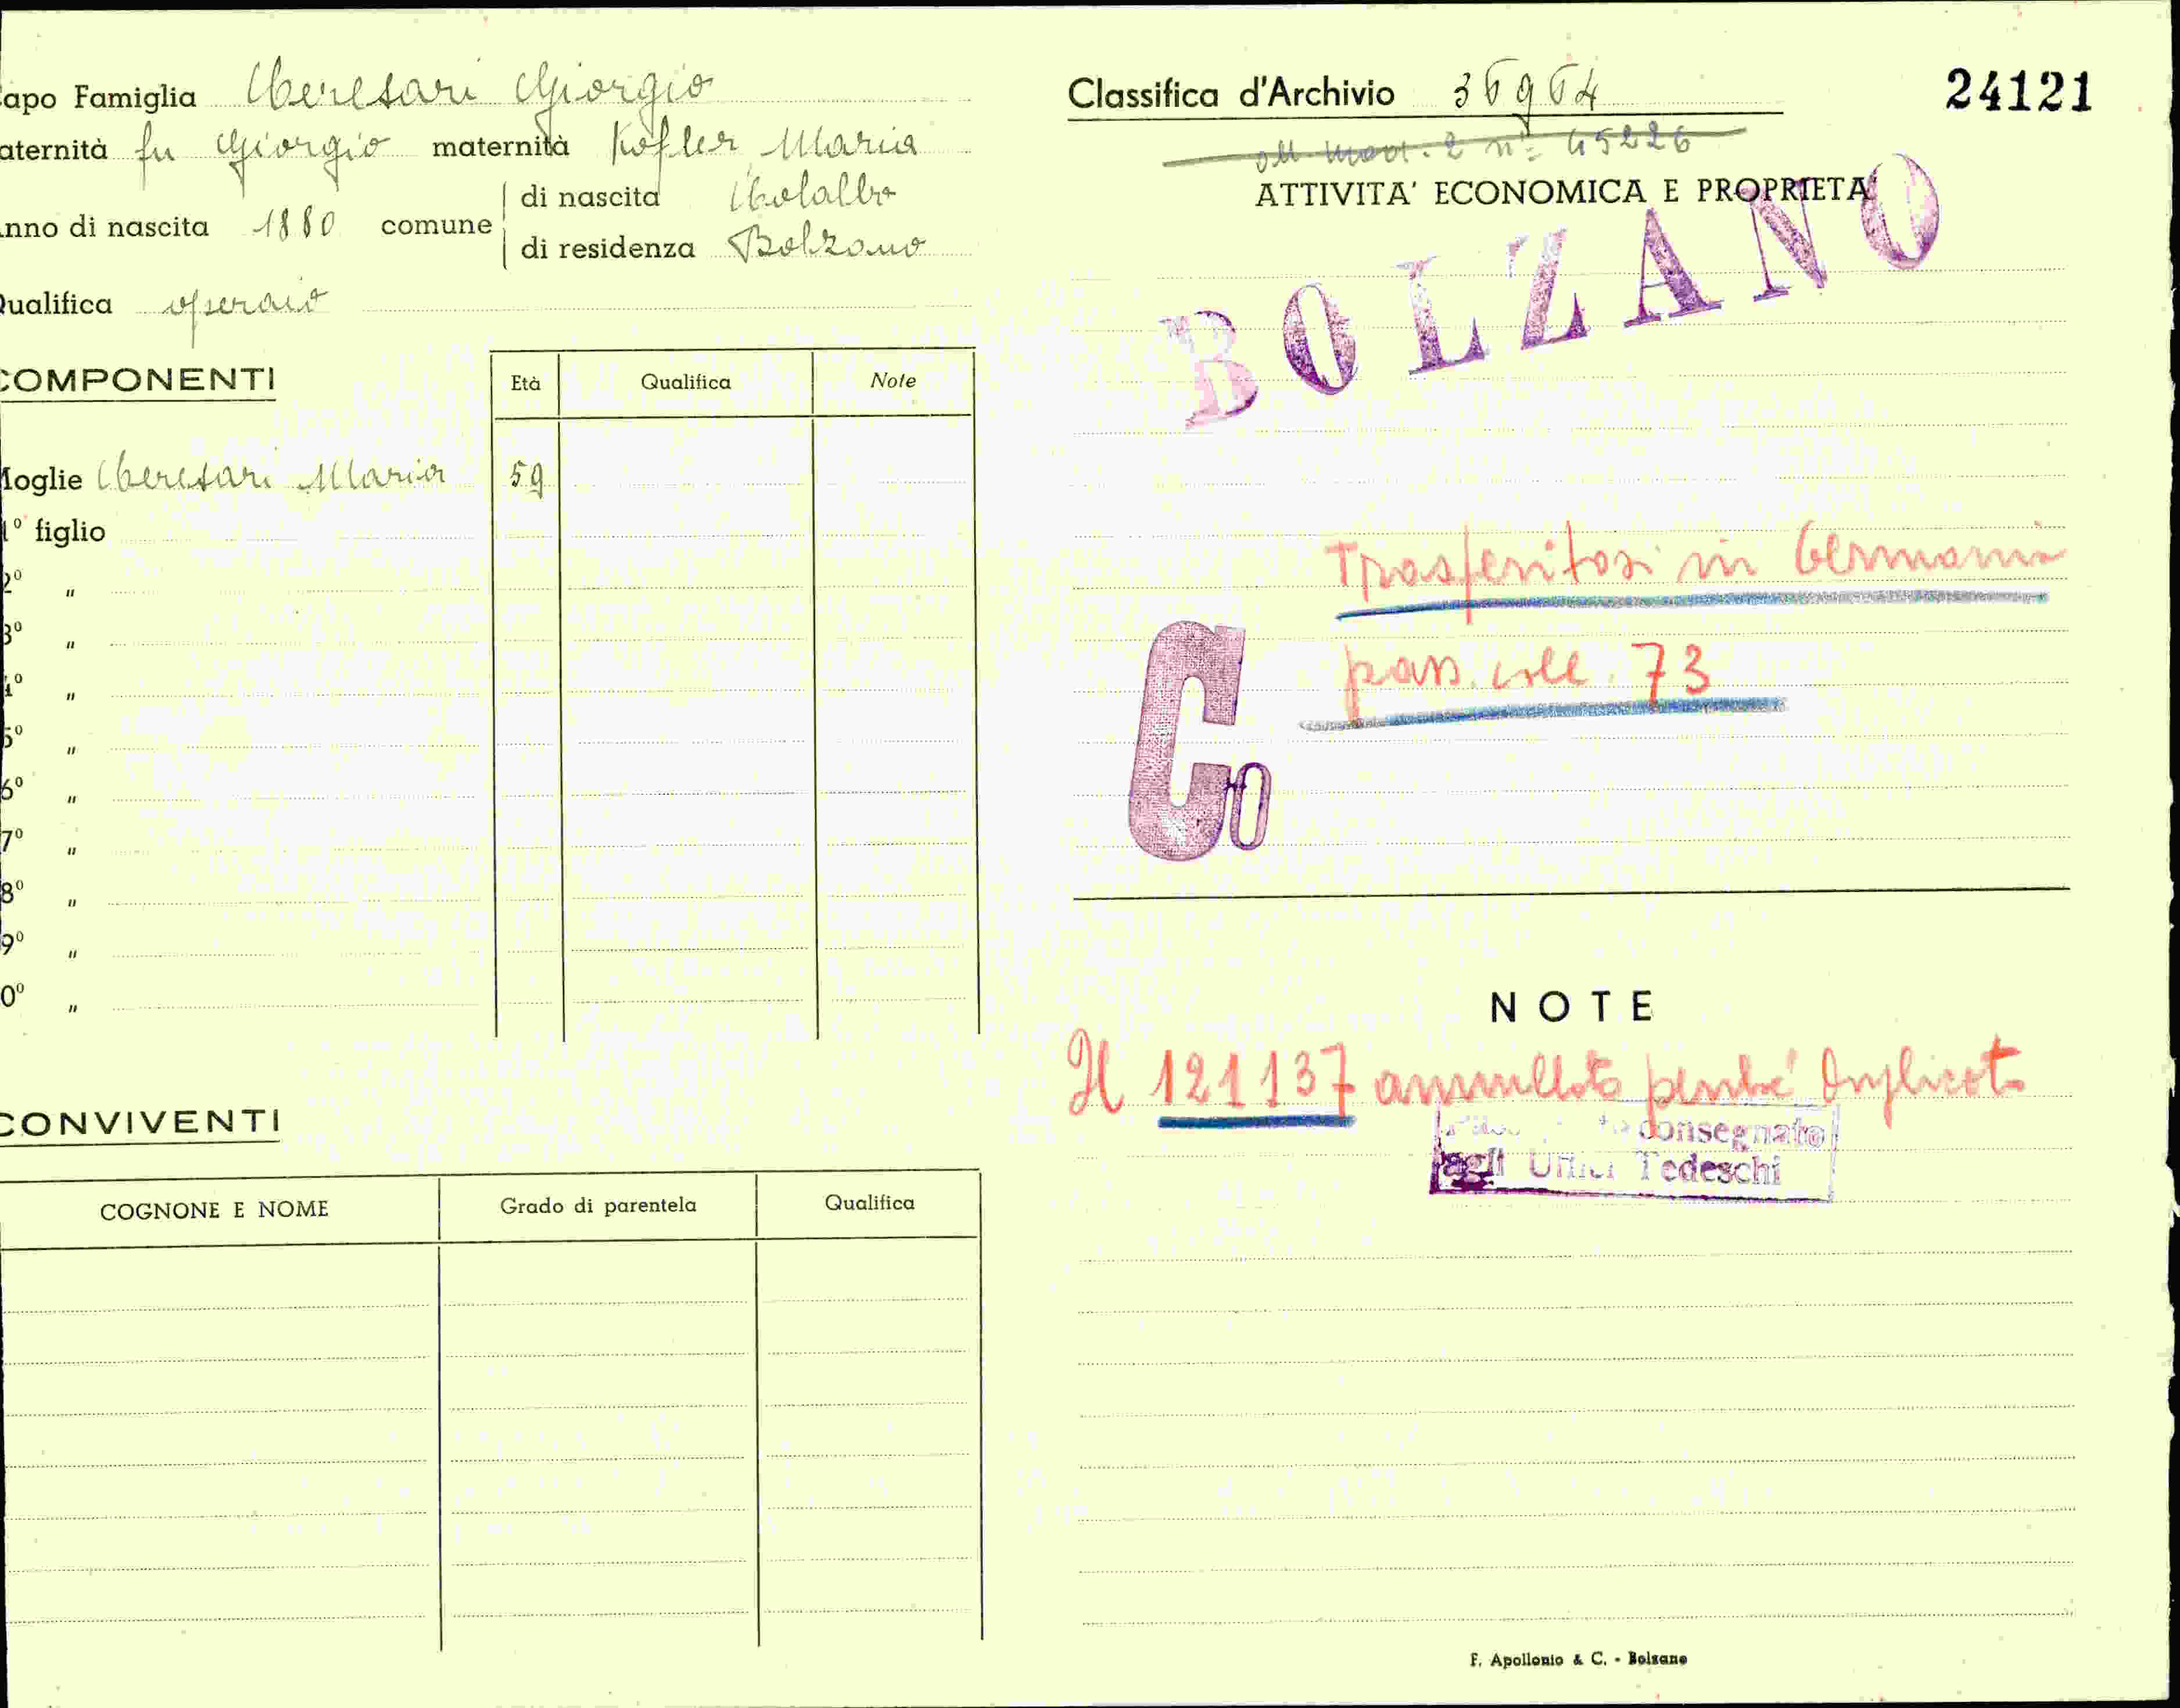 apo Famiglia Ceresari Giorgio
aternità fu Giorgio maternità Kofler Maria
nno di nascita 1880 comune di nascita Collalbo
di residenza Bolzano
Qualifica operaio
COMPONENTI
Età Qualifica Note
Moglie Ceresari Maria 59
1º figlio
2º "
3º "
4º "
5º "
6º "
7º "
8º "
9º "
0º "
CONVIVENTI
COGNONE E NOME Grado di parentela Qualifica
Classifica d'Archivio 36964
24121
all. mod. 2 nº 45226
ATTIVITA' ECONOMICA E PROPRIETA'
BOLZANO
Trasferitosi in Germania
pass. coll. 73
Co
NOTE
Il 121137 annullato perché duplicato
consegnato
agli Uffici Tedeschi
F. Apollonio & C. - Bolzano